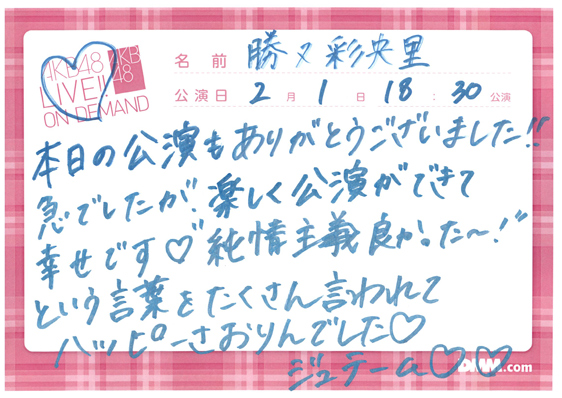 AKB48
LIVE!!
ON DEMAND
AKB
48
名前 勝又彩央里
公演日 2月1日 18:30公演
本日の公演もありがとうございました!!
急でしたが、楽しく公演ができて
幸せです♡"純情主義良かった〜!"
という言葉をたくさん言われて
ハッピーさおりんでした♡
ジュテーム♡♡
DMM.com